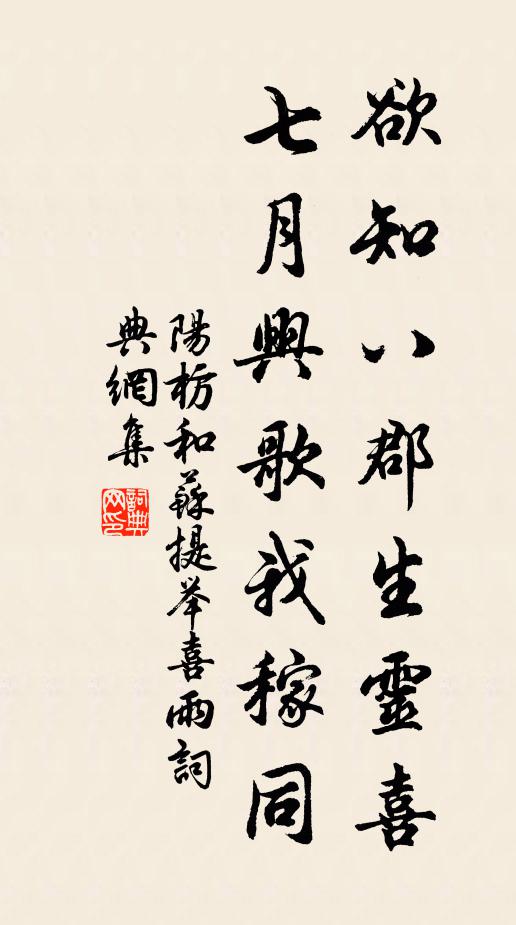 欲知八郡生靈喜
七月興歌我稼同
陽枋和蘇提举喜雨詞
典網集
詞典
网印